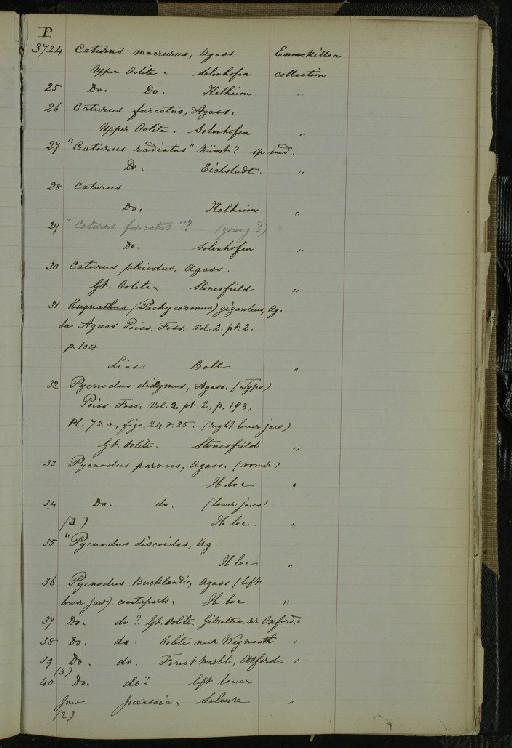 P.
3724 Caturus macrurus, Agass Enniskillen
Upper Oolite. Solnhofen collection
25 Do. Do. Kelheim "
26 Caturus furcatus, Agass.
Upper Oolite. Solnhofen "
27 "Caturus radiatus" Münst? sp.
Do. Eichstadt. "
28 Caturus
Do. Kelheim "
29 "Caturus furcatus"? (young?)
Do. Solenhofen "
30 Caturus pleiodus, Agass.
Gt. Oolite. Stonesfield "
31 (Pachycormus) giganteus, Ag.
Agass Poiss. Foss. Vol. 2. pt. 2.
p.
Lias Boll "
32 Pycnodus didymus, Agass. (Type)
Poiss. Foss. Vol. 2, pt. 2, p. 193.
Pl. 72a, figs. 24 & 25. (right lower jaw)
Gt. Oolite. Stonesfield "
33 Pycnodus parvus, Agass. (vomer)
" loc "
34 Do. do. (lower jaw)
(2) loc. "
35 "Pycnodus discoides, Ag
loc "
36 Pycnodus Bucklandi, Agass (left
lower jaw) counterparts. loc "
37 Do. do? Gt. Oolite, Gibraltar, nr Oxford "
38 Do. do. Oolite near Weymouth "
39 Do. do. Forest Marble, Oxford "
(3)
40 Do. do? left lower
jaw Jurassic. Soleure "
(2)